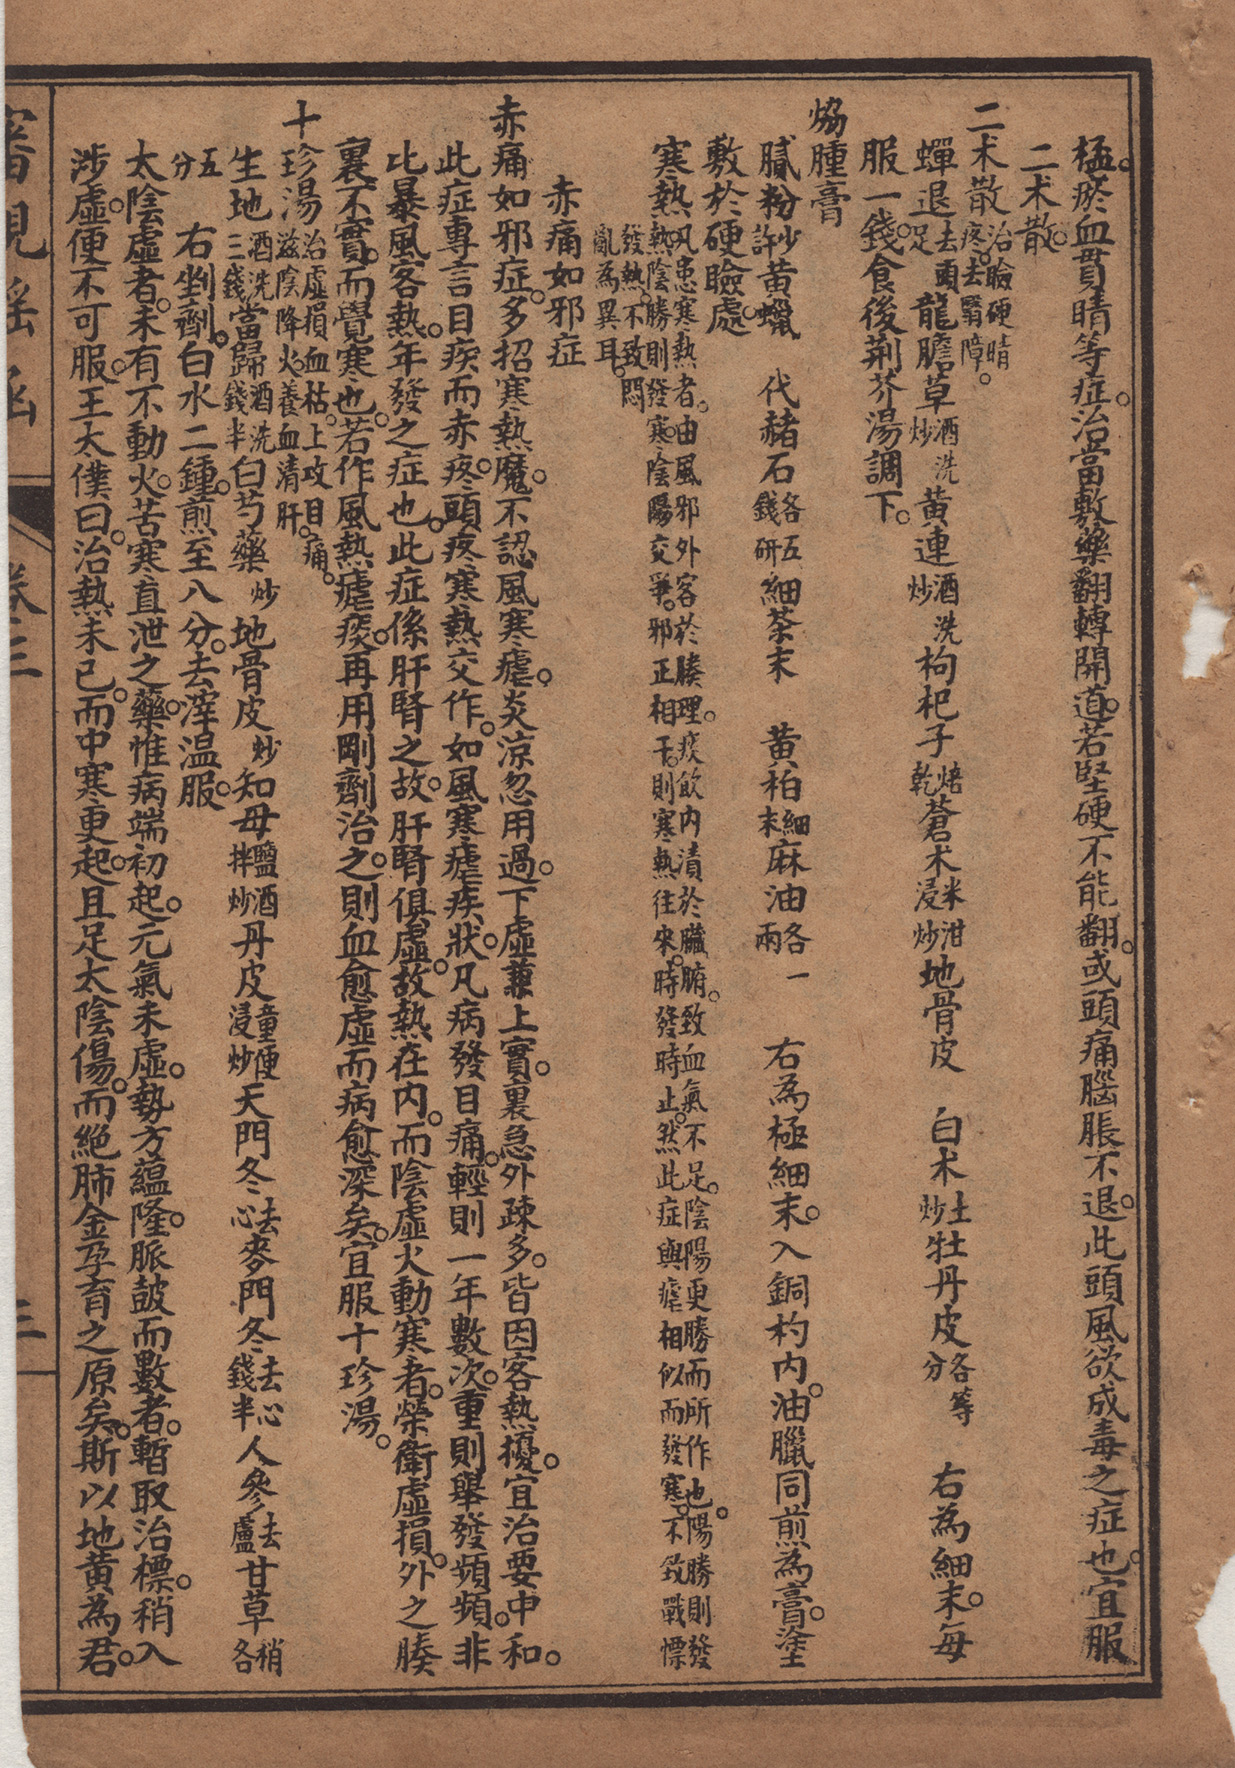 極瘀血貫睛等症治當敷藥翻轉開道若堅硬不能翻或頭痛腦脹不退此頭風欲成毒之症也宜服
二术散
二术散治瞼硬睛疼去翳障
蟬退去頭足龍膽草酒洗炒黃連酒洗炒枸杞子焙乾蒼术米泔浸炒地骨皮 白术土炒牡丹皮各等分 右為細末每
服一錢食後荆芥湯調下
㷎腫膏
膩粉少許黃蠟 代赭石各五錢研細茶末 黃柏細末麻油各一兩 右為極細末入銅杓內油臘同煎為膏塗
敷於硬瞼處
寒熱凡患寒熱者由風邪外客於腠理痰飲內漬於臟腑致血氣不足陰陽更勝而所作也陽勝則發熱陰勝則發寒陰陽交爭邪正相干則寒熱往來時發時止然此症與瘧相似而發寒不致戰慄
發熱不致悶亂為異耳
赤痛如邪症
赤痛如邪症多招寒熱魔不認風寒瘧炎涼忽用過下虛兼上實裏急外疎多皆因客熱擾宜治要中和
此症專言目疾而赤疼頭疼寒熱交作如風寒瘧疾狀凡病發目痛輕則一年數次重則舉發頻頻非
比暴風客熱年發之症也此症係肝腎之故肝腎俱虛故熱在內而陰虛火動寒者榮衛虛損外之腠
裏不實而覺寒也若作風熱瘧痰再用剛劑治之則血愈虛而病愈深矣宜服十珍湯
十珍湯治虛損血枯上攻目痛滋陰降火養血清肝
生地酒洗三錢當歸酒洗錢半白芍藥炒地骨皮炒知母鹽酒拌炒丹皮童便浸炒天門冬去心麥門冬去心錢半人參去盧甘草稍各
五分 右剉劑白水二鍾煎至八分去滓温服
太陰虛者未有不動火苦寒直泄之藥惟病端初起元氣未虛勢方蘊隆脈皷而數者暫取治標稍入
涉虛便不可服王太僕曰治熱未已而中寒更起且足太陰傷而絕肺金孕育之原矣斯以地黃為君
審視瑤函
卷三
三